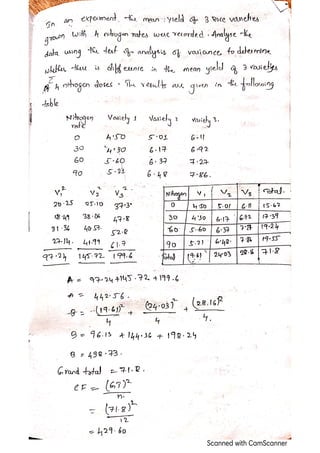 In an experiment the mean yield of 3 Rice varieties
grown with 4 nitrogen rates were recorded. Analyse the
data using the test of analysis of variance to determine
whether there is difference in the mean yield of 3 varieties
4 nitrogen doses. The results are given in the following
table
Nitrogen rate Variety 1 Variety 2 Variety 3.
0 4.50 5.01 6.11
30 4.30 6.17 6.92
60 5.60 6.37 7.27
90 5.23 6.48 7.86.
V1² V2² V3²
20.25 25.10 37.3
18.49 38.06 47.8
31.36 40.57 52.8
27.14. 41.99 61.7
97.24 145.72 199.6
Nitrogen V1 V2 V3 Total.
0 4.50 5.01 6.11 15.62
30 4.30 6.17 6.92 17.39
60 5.60 6.37 7.27 19.24
90 5.21 6.48. 7.86 19.55
Total 19.61 24.03 28.16 71.8
A = 97.24+145.72 +199.6
A = 442.56.
B = (19.61)²/4 + (24.03)²/4 + (28.16)²/4.
B = 96.13 + 144.36 + 198.24
B = 438.73.
Grand total = 71.8.
CF = (GT)²/n.
= (71.8)²/12
= 429.60
Scanned with CamScanner